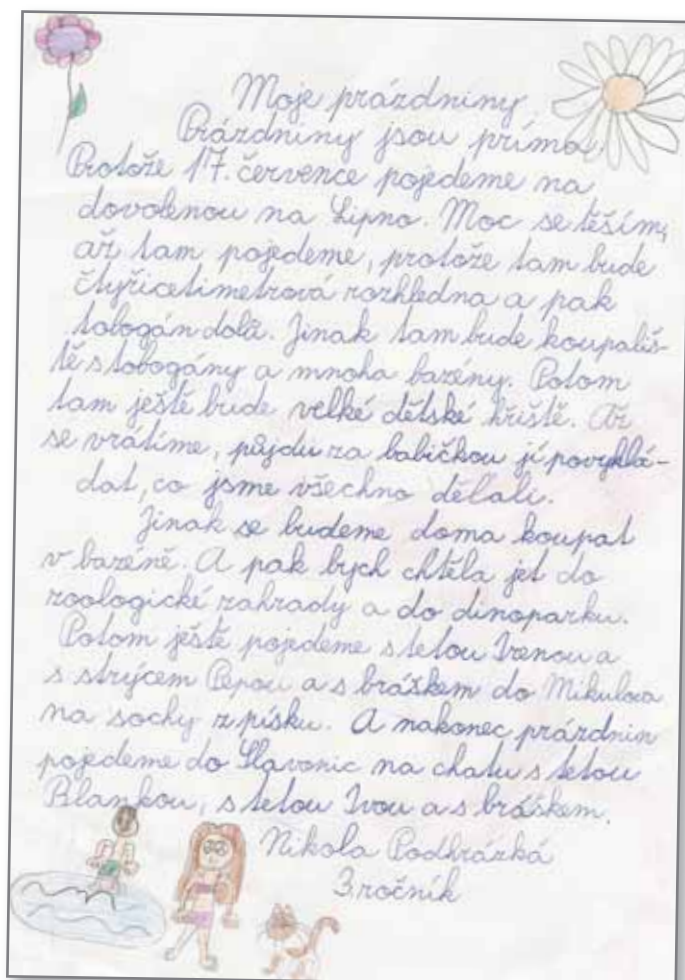 Moje prázdniny
Prázdniny jsou príma.
Protože 17. července pojedeme na
dovolenou na Lipno. Moc se těším,
až tam pojedeme, protože tam bude
čtyřicetimetrová rozhledna a pak
tobogán dolů. Jinak tam bude koupališ-
tě s tobogány a mnoha bazény. Potom
tam ještě bude velké dětské hřiště. Až
se vrátíme, půjdu za babičkou jí povyklá-
dat, co jsme všechno dělali.
Jinak se budeme doma koupat
v bazéně. A pak bych chtěla jet do
zoologické zahrady a do dinoparku.
Potom ještě pojedeme s tetou Irenou a
s strýcem Pepou a s bráškem do Mikulova
na sochy z písku. A nakonec prázdnin
pojedeme do Slavonic na chatu s tetou
Blankou, s tetou Ivou a s bráškem.
Nikola Podhrázká
3. ročník